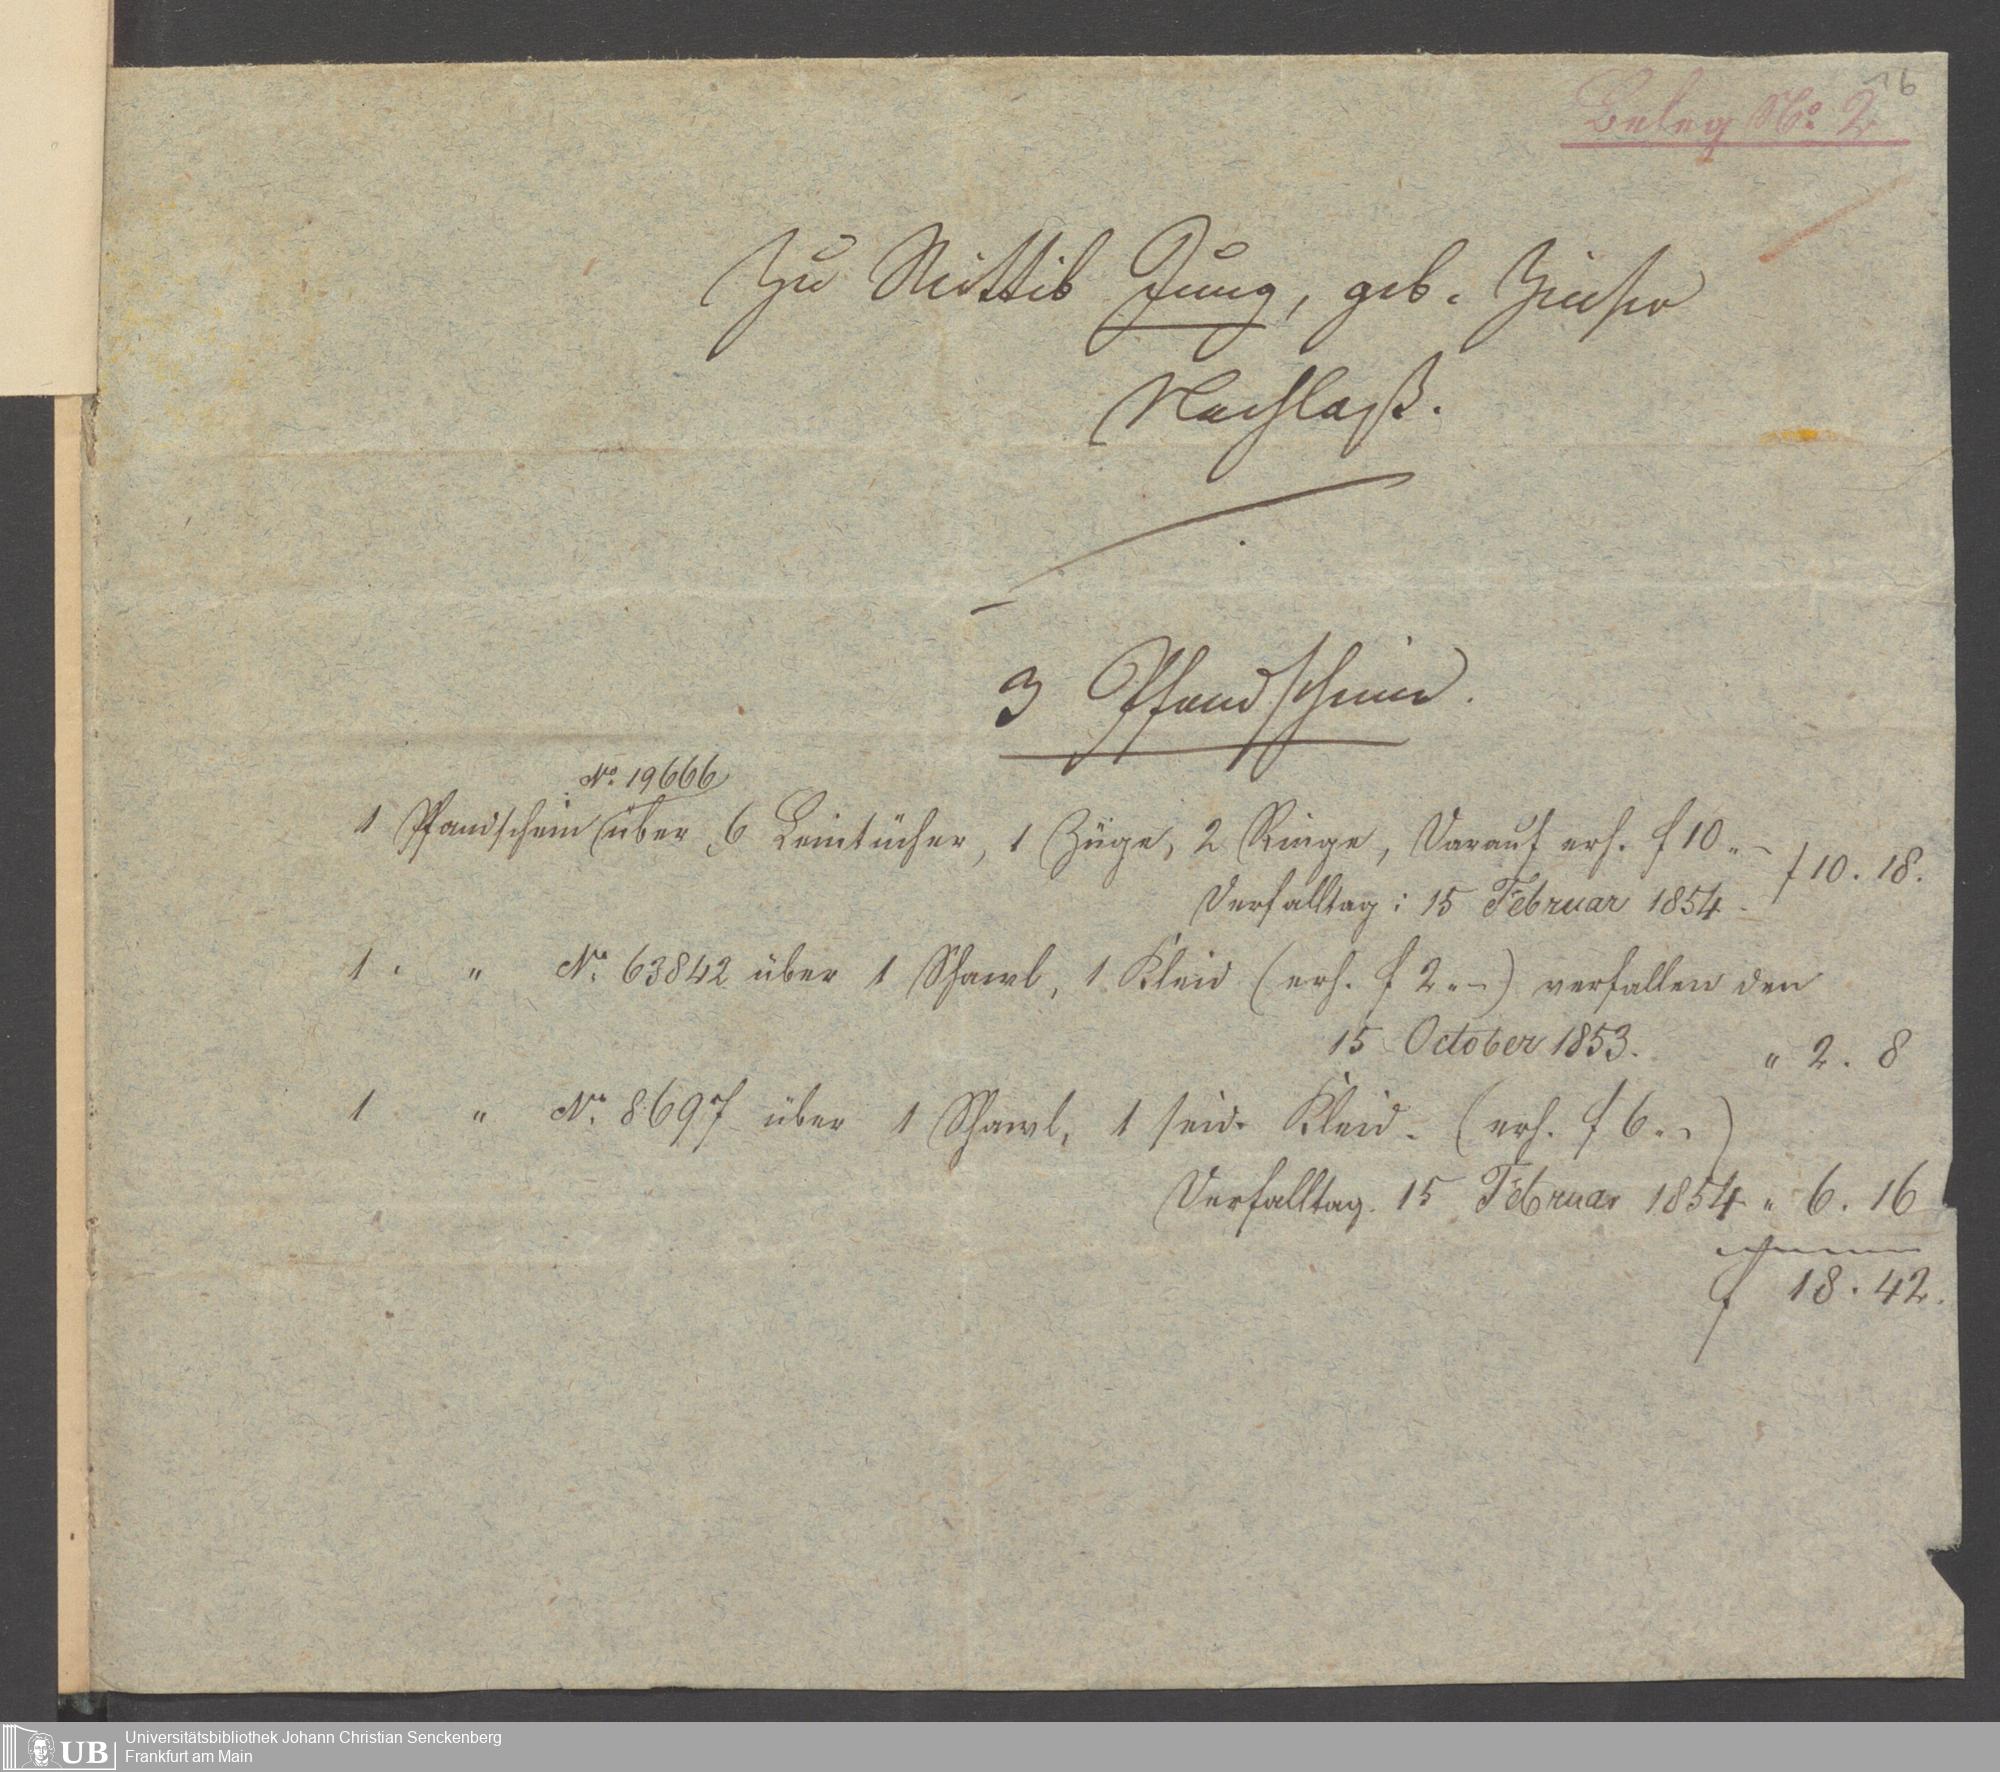 16
Beleg No. 2
Zu Wittib Jung, geb. Zinser
Nachlaß.
3 Pfandscheine.
No. 19666
1 Pfandschein über 6 Leintücher, 1 Züge, 2 Ringe, darauf erh. f 10 „ –
f 10 . 18.
Verfalltag: 15 Februar 1854
1 „ No. 63842 über 1 Shawl, 1 Kleid (erh. f 2 „ –) verfallen den
15 October 1853. „ 2 . 8
1 „ No. 8697 über 1 Shawl, 1 seid. Kleid. (erh. f 6 „ –)
Verfalltag. 15 Februar 1854 „ 6 . 16
f 18 . 42.
Universitätsbibliothek Johann Christian Senckenberg
Frankfurt am Main
UB